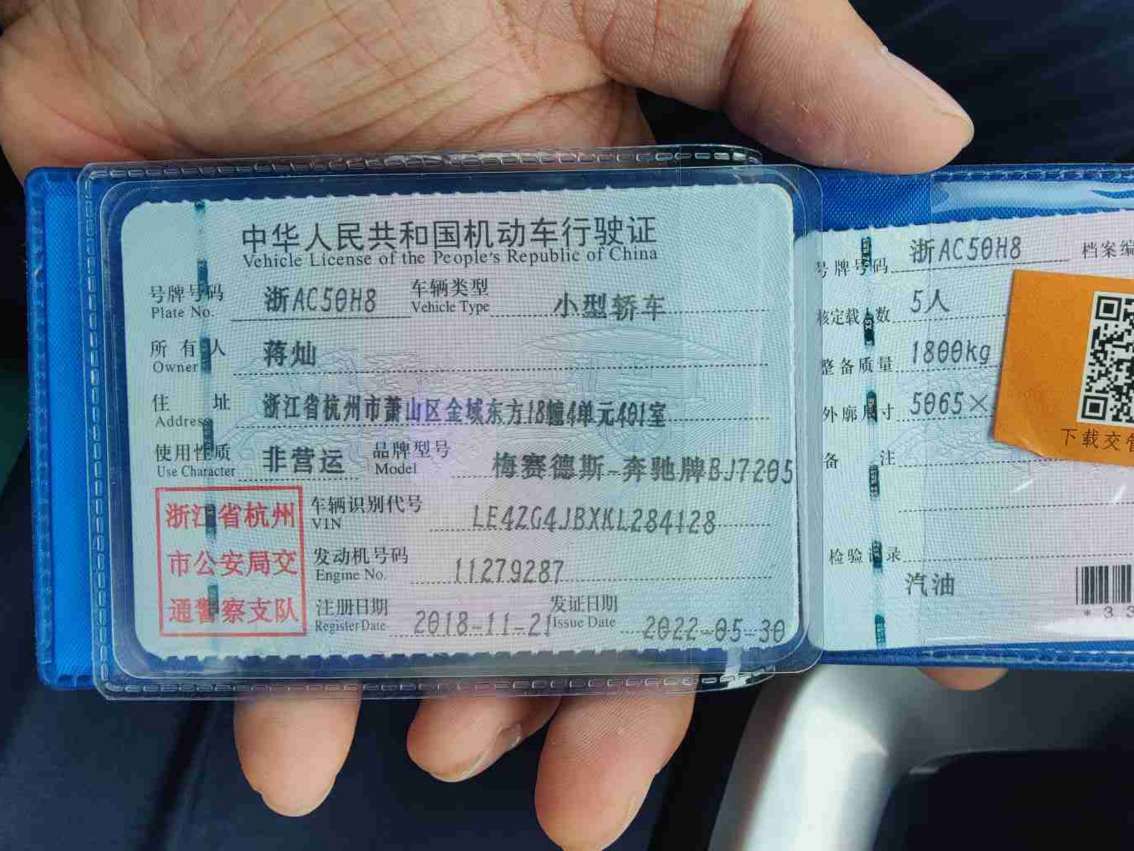 中华人民共和国机动车行驶证
Vehicle License of the People's Republic of China
号牌号码 浙AC50H8 车辆类型 小型轿车
Plate No. Vehicle Type
所有人 蒋灿
Owner
住址 浙江省杭州市萧山区金域东方18幢4单元401室
Address
使用性质 非营运 品牌型号 梅赛德斯-奔驰牌BJ7205
Use Character Model
浙江省杭州
市公安局交
通警察支队
车辆识别代号 LE4ZG4JBXKL284128
VIN
发动机号码 11279287
Engine No.
注册日期 2018-11-21 发证日期 2022-05-30
Register Date Issue Date
号牌号码 浙AC50H8 档案编
核定载人数 5人
整备质量 1800kg
外廓尺寸 5065×
备注
检验记录
汽油
下载交管
*33